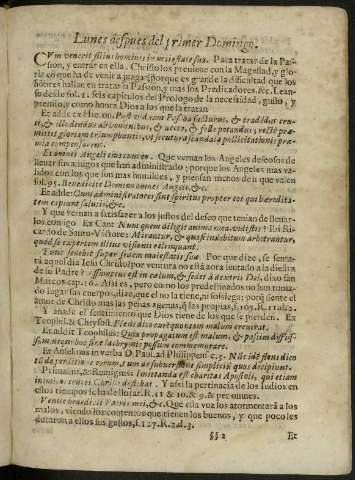 Lunes despues del primer Domingo.
CVm venerit filius hominis in maiestate sua. Para tratar de la Pas-
sion, y entrar en ella. Christo los preuiene con la Magestad, y glo-
ria cõ que ha de venir a juzgar; porque es grande la dificultad que los
hõbres hallan en tratar la Passion, y mas los Predicadores. &c. Lean-
se desde fol. 1. seis capitulos del Prologo de la necesidad, gusto, y
premio, y como honra Dios a los que la tratan.
Et adde ex Hieron. Post biduum Pascha facturus, & tradēdus cruci-
ci, & illudendus ab hominibus, & aceto, & felle potandus; rectè præ-
mittit gloriam triumphantis, vt secutura scandala pollicitationis præ-
mio compensaret.
Et omnes Angeli eius cum eo. Que vernan los Angeles deseosos de
lleuar sus amigos que han administrado; porque los Angeles mas va-
lidos con los que son mas humildes, y piensan menos de si que valen
fol. 95. Benedicite Domino omnes Angeli, &c.
Et adde: Cum administratores sint spiritus propter eos qui hæredita-
tem capiunt salutis, &c.
Y que vernan a satisfazer a los justos del deseo que tenian de sentar-
los contigo. Ex Cant. Nunquem diligit anima mea vidistis? Ibi Ri-
cardo de Santo-Victore: Mirantur, & quasi indebitum arbitrantur,
quòd se expertem illius visionis relinquant.
Tunc sedebit super sedem maiestatis suæ. Por que dize, se senta-
rà aquel dia Iesu Christo? por ventura no està aora sentado a la diestra
de su Padre? Assumptus est in cælum, & sedet à dextris Dei, dixo san
Marcos cap. 16. Assi es, pero como los predestinados no han toma-
do lugar sus cuerpos, dize, que el no la tiene, ni sosiega; porq̃ siente el
amor de Christo mas las penas agenas, q̃ las propias, f. 105. R. 11. d. 2.
Y añade el sentimiento que Dios tiene de los que se pierden. Ex
Teophil. & Chrysost. Flent dico eurũ quorum malum creuerat.
Et addit Teophilus: Quia propagatum est malum, & passim diffos-
sum, neque hoc sine lachrymis possum commemorare.
Et Anselmus in verba D. Paul, ad Philippen. c. 3. Nũc idẽ flens dico
tũ de perditione eorum, tum ac subuersione simpliciũ quos decipiunt.
Primasius, & Remigius: Imitanda est charitas Apostoli, qui etiam
inimicos crucis Christi deflebat. Y assi la pertinacia de los Iudios en
estos tiempos se ha de llorar. R. 11. & 10. & 9. & per omnes.
Venite benedicti Patris mei, &c. Que esta voz los atormentarà a los
malos, viendo los contentos que tienen los buenos, y que poco les
duraron a ellos sus gustos, f. 127. R. 2. d. 3.
§§ 2 Et